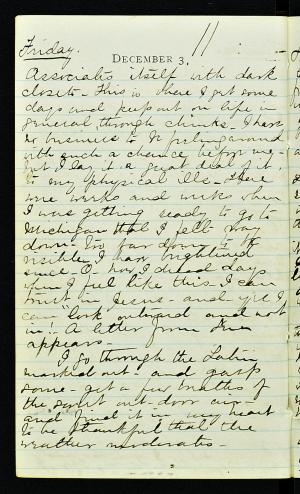 Friday.
11
DECEMBER 3.
Associates itself with dark
closets - This is where I get some
days and peep out on life in
general, through chinks - I have
no business to be feeling around
with such a chance before me -
but I lay it a great deal of it
to my physical ills - There
were weeks and weeks when
I was getting ready to go to
Michigan that I felt way
down - too far down to be
visible. I have brightened
since - O how I dread days
when I feel like this. I can
trust in Jesus - and yet I
can "look outward and not
in". A letter from
appears -
I go through the Latin
marked out - and gasp
some - get a few breaths of
the sweet out-door air -
and find it in my heart
to be thankful that the
weather moderates -